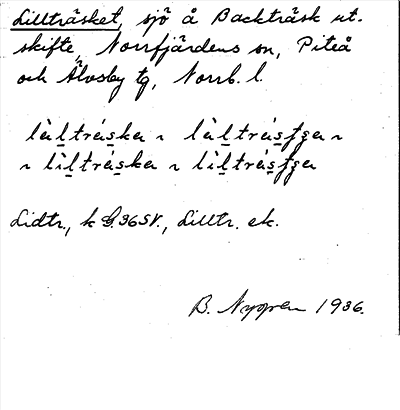 Lillträsket, sjö å Backträsk ut-
skifte, Norrfjärdens sn, Piteå
och Älvsby tg, Norrb. l.
lìltráska ~ lìltrásʃga ~
~ lìltráska ~ lìltrásʃga
Lidtr., k G36SV., Lilltr. ek.
B. Nygren 1936.